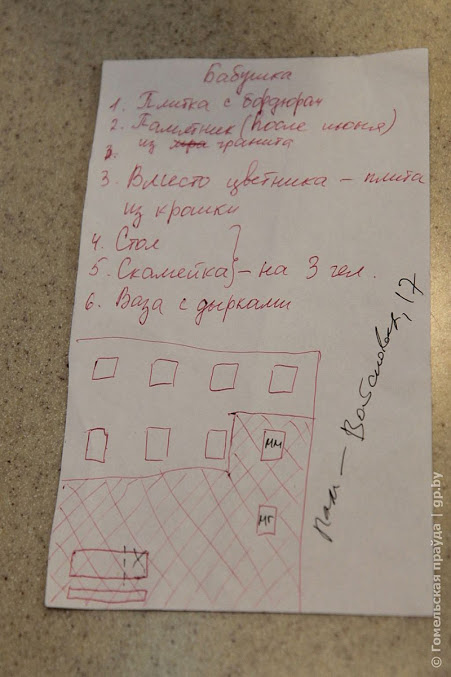 Бабушка
1. Плитка с бордюрам
2. Памятник (после июня)
из гранита
3.
3. Вместо цветника – плита
из крошки
4. Стол
5. Скамейка – на 3 чел.
6. Ваза с дырками
мм
мг
17
© Гомельская праўда | gp.by